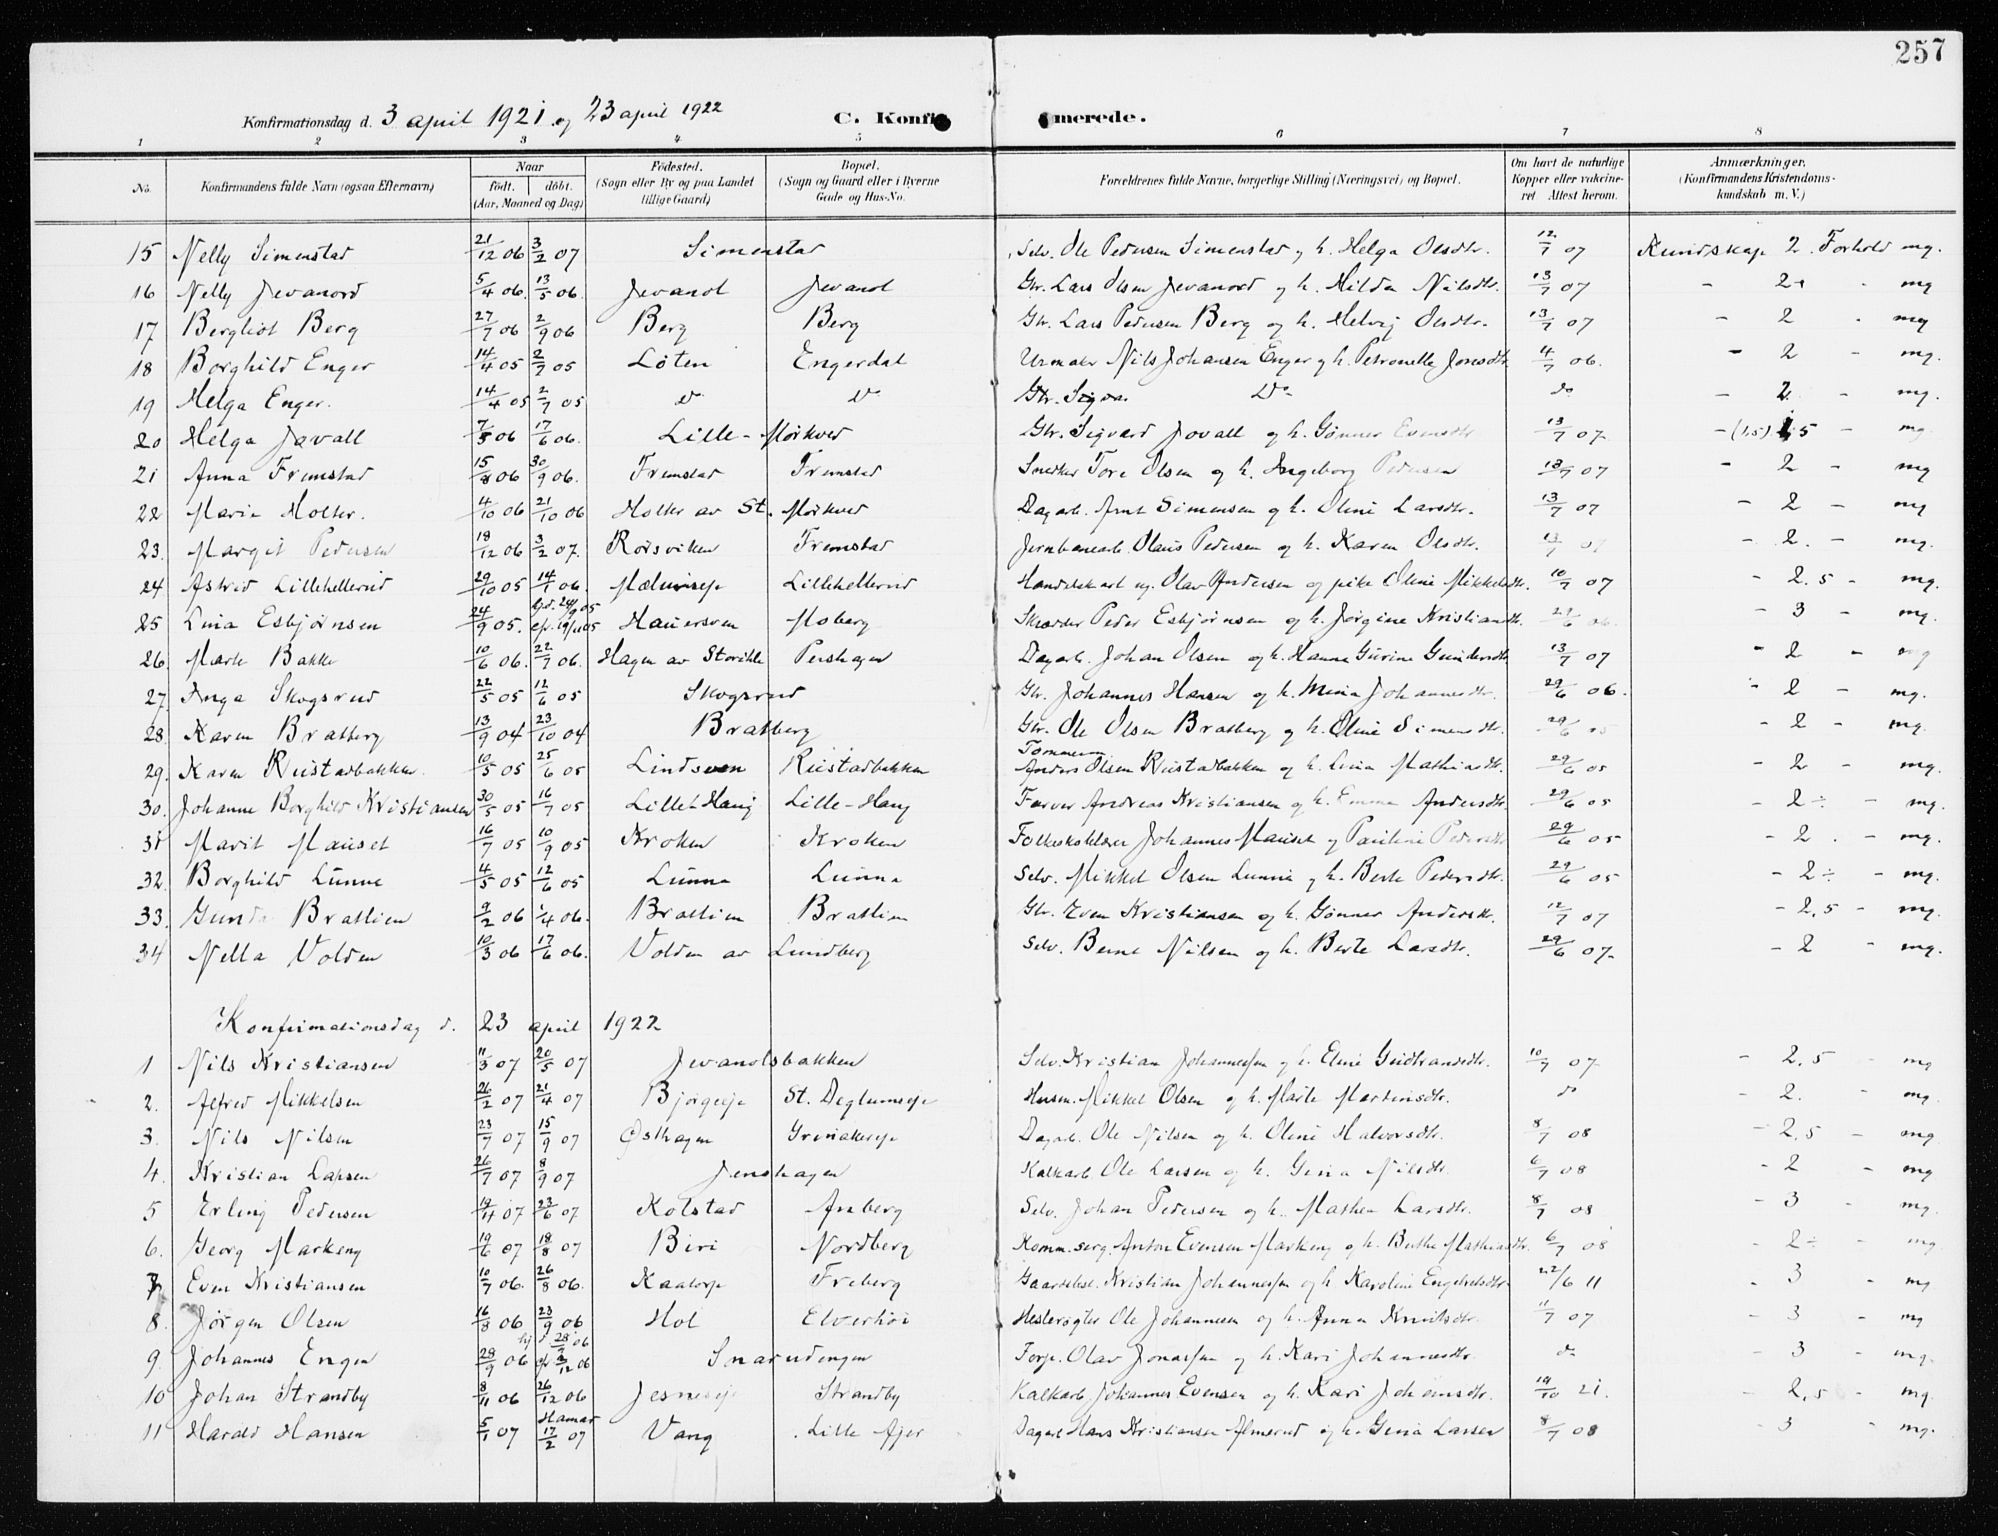 257
Konfirmationsdag d. 3 april 1921 og 23 april 1922 C. Konfirmerede.
1 2 3 4 5 6 7 8
No. Konfirmandens fulde Navn (ogsaa Efternavn) Naar født. døbt. (Aar, Maaned og Dag) Födested. (Sogn eller By og paa Landet tillige Gaard) Bopæl. (Sogn og Gaard eller i Byerne Gade og Hus-No. Forældrenes fulde Navne, borgerlige Stilling (Næringsvei) og Bopæl. Om havt de naturlige Kopper eller vakcineret Attest herom. Anmærkninger. (Konfirmandens Kristendomskundskab m. V.)
15 Nelly Simenstad 21/12 06 3/2 07 Simenstad Selv. Ole Pedersen Simenstad og h. Helga Olsdtr. 12/7 07 Kundskap 2. Forhold mg.
16 Nelly Jevanord 5/4 06. 13/5 06. Jevanol Jevanol Gbr. Lars Olsen Jevanord og h. Hilda Nilsdtr. 13/7 07 - 2+ - mg
17 Bergliot Berg 27/7 06 2/9 06 Berg Berg Gbr. Lars Pedersen Berg og h. Helvig Olsdtr. 13/7 07 - 2 - mg
18 Borghild Enger 14/4 05 2/7 05 Løten Engerdal Urmaker Nils Johansen Enger og h. Petronelle Jonsdtr 4/7 06. - 2 - mg.
19 Helga Enger. 14/4 05 2/7 05 do do Do do - 2. - mg.
20 Helga Javall 7/5 06 17/6 06. Lille-Mørkved Gbr. Sigvard Jovall og h. Gønner Evensdtr 13/7 07 - (1,5) 1,5 - mg.
21 Anna Fremstad 15/8 06 30/9 06. Fremstad Fremstad Snedker Tore Olsen og h. Ingeborg Pedersen 13/7 07 - 2 - mg
22 Marie Holter. 4/10 06 21/10 06 Holter av St. Mørkved Dagarb. Arnt Simensen og h. Oline Larsdtr. 13/7 07 - 2 - mg
23. Margit Pedersen 18/12 06 3/2 07. Rørsviken Fremstad Jernbanearb. Olaus Pedersen og h. Karen Olsdtr. 13/7 07 - 2. - mg.
24 Astrid Lillehellerud 29/10 05 14/1 06. Lillehellerud Handelskarl ug. Olav Andersen og pike Oline Mikkelsdtr. 10/7 07 - 2,5 - mg.
25 Lina Esbjørnsen 24/9 05. hjd. 24/9 05 19/11 05 Hauersven Moberg Skrædder Peder Esbjørnsen og h. Jørgine Kristiansdtr. 29/6 06. - 3 - mg.
26. Marte Bakke 10/6 06. 22/7 06. Hagen av Storihle Pershagen Dagarb. Johan Olsen og h. Hanna Gurine Gundersdtr 13/7 07 - 2 - mg
27. Inga Skogsrud 22/5 05 12/6 05 Skogsrud Gbr. Johannes Hansen og h. Mina Johannesdtr. 29/6 06. - 2 - mg.
28. Karen Bratberg 13/9 04 23/10 04 Bratberg Gbr. Ole Olsen Bratberg og h. Oline Simensdtr. 29/6 05 - 2 - mg.
29. Karen Rustadbakken. 10/5 05 25/6 05 Lindsveen Rustadbakken Tømmerm. Anders Olsen Rustadbakken og h. Lina Mathiasdtr. 29/6 05 - 2 - mg.
30. Johanne Borghild Kristiansen 30/5 05 16/7 05 Lille-Haug Lille-Haug Farver Andreas Kristiansen og h. Emma Andersdtr 29/6 05 - 2÷ - mg.
31 Marit Mauset 16/7 05 10/9 05 Kroken Kroken Folkeskolelærer Johannes Mauset og Pauline Pedersdtr 29/6 05 - 2 . - mg.
32. Borghild Lunne 4/5 05 12/6 05 Lunna Lunna Selv. Mikkel Olsen Lunna og h. Berte Pedersdtr. 29/6 05 - 2÷ - mg.
33. Gunda Brattien 9/2 06 1/4 06. Brattien Brattien Gbr. Even Kristiansen og h. Gønner Andersdtr. 12/7 07 - 2,5 - mg.
34 Nella Volden 10/3 06 17/6 06. Volden av Lundberg Selv. Bernt Nilsen og h. Berte Larsdtr. 29/6 07. - 2 - mg.
Konfirmationsdag d. 23 april 1922
1 Nils Kristiansen 11/3 07 20/5 07 Jevanolsbakken Selv. Kristian Johannessen og h. Eline Gudbrandsdtr. 10/7 07. - 2,5 - mg
2. Alfred Mikkelsen 26/2 07 21/4 07 Bjørgeeje St. Deglumseje Husm. Mikkel Olsen og h. Marte Martinsdtr. do - 2. - mg.
3. Nils Nilsen 23/7 07 15/9 07 Østhagen Grenakereje Dagarb. Ole Nilsen og h. Oline Halvorsdtr. 8/7 08 - 2,5 - mg
4. Kristian Larsen 26/7 07 8/9 07 Jenshagen Kalkarb. Ole Larsen og h. Gina Nilsdtr. 6/7 08 - 2 - mg
5 Erling Pedersen 19/4 07 23/6 07 Kolstad Arberg Selv. Johan Pedersen og h. Mathea Larsdtr. 8/7 08 - 3 - mg.
6. Georg Markeng 19/6 07 18/8 07 Biri Nordberg Komm.serg. Anton Evensen Markeng og h. Berthe Mathiasdtr. 6/7 08 - 2÷ - mg.
7 Even Kristiansen 10/7 06. 26/8 06. Kaatorp Freberg Gaardsbst. Kristian Johannessen og h. Karoline Engebretsdtr 22/6 11 - 3 - mg
8. Jørgen Olsen 16/8 06 23/9 06 Hol Elverhøi Hesterøgter Ole Johannesen og h. Anna Knutsdtr. 11/7 07 - 3 - mg
9. Johannes Engen 28/9 06 hjd 28/9 06 2/12 06 Snarudengen Torp. Olav Jonassen og h. Kari Johannesdtr. do - 3 - mg.
10 Johan Strandby 8/11 06 26/12 06 Jesneseje Strandby Kalkarb. Johannes Evensen og h. Kari Johansdtr. 19/10 21. - 2,5 - mg.
11 Harald Hansen 5/1 07 Hamar 17/2 07 Vang Lille Ajer Dagarb Hans Kristiansen Almerud og h. Gina Larsen 8/7 08 3 - mg.